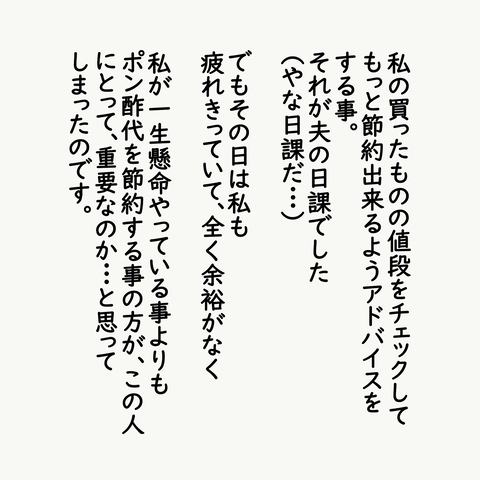 私の買ったものの値段をチェックして
もっと節約出来るようアドバイスを
する事。
それが夫の日課でした
(やな日課だ…)
でもその日は私も
疲れきっていて、全く余裕がなく
私が一生懸命やっている事よりも
ポン酢代を節約する事の方が、この人
にとって、重要なのか…と思って
しまったのです。